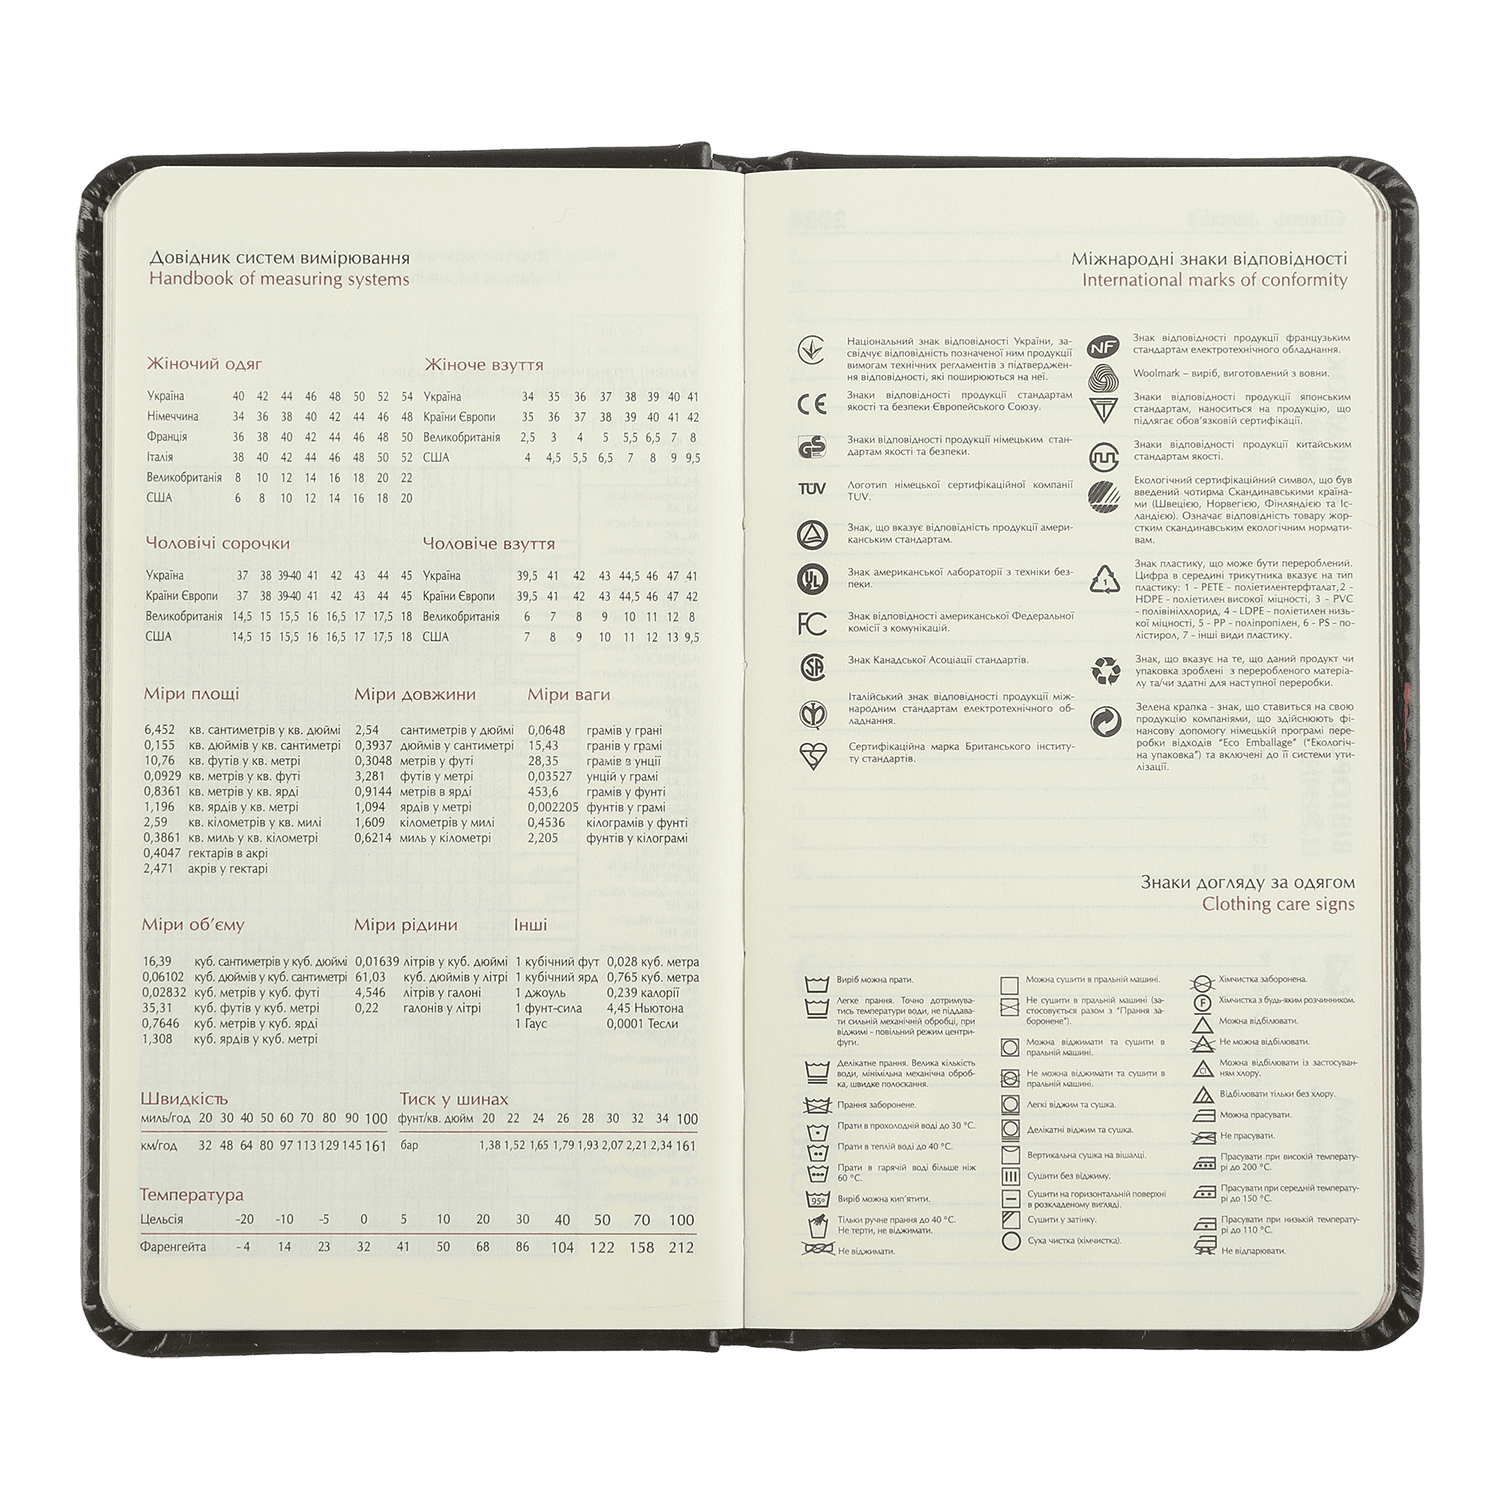 Довідник систем вимірювання
Handbook of measuring systems
Жіночий одяг
Україна 40 42 44 46 48 50 52 54
Німеччина 34 36 38 40 42 44 46 48
Франція 36 38 40 42 44 46 48 50
Італія 38 40 42 44 46 48 50 52
Великобританія 8 10 12 14 16 18 20 22
США 6 8 10 12 14 16 18 20
Жіноче взуття
Україна 34 35 36 37 38 39 40 41
Країни Європи 35 36 37 38 39 40 41 42
Великобританія 2,5 3 4 5 5,5 6,5 7 8
США 4 4,5 5,5 6,5 7 8 9 9,5
Чоловічі сорочки
Україна 37 38 39-40 41 42 43 44 45
Країни Європи 37 38 39-40 41 42 43 44 45
Великобританія 14,5 15 15,5 16 16,5 17 17,5 18
США 14,5 15 15,5 16 16,5 17 17,5 18
Чоловіче взуття
Україна 39,5 41 42 43 44,5 46 47 41
Країни Європи 39,5 41 42 43 44,5 46 47 42
Великобританія 6 7 8 9 10 11 12 8
США 7 8 9 10 11 12 13 9,5
Міри площі
6,452 кв. сантиметрів у кв. дюймі
0,155 кв. дюймів у кв. сантиметрі
10,76 кв. футів у кв. метрі
0,0929 кв. метрів у кв. футі
0,8361 кв. метрів у кв. ярді
1,196 кв. ярдів у кв. метрі
2,59 кв. кілометрів у кв. милі
0,3861 кв. миль у кв. кілометрі
0,4047 гектарів в акрі
2,471 акрів у гектарі
Міри довжини
2,54 сантиметрів у дюймі
0,3937 дюймів у сантиметрі
0,3048 метрів у футі
3,281 футів у метрі
0,9144 метрів в ярді
1,094 ярдів у метрі
1,609 кілометрів у милі
0,6214 миль у кілометрі
Міри ваги
0,0648 грамів у грані
15,43 гранів у грамі
28,35 грамів в унції
0,03527 унцій у грамі
453,6 грамів у фунті
0,002205 фунтів у грамі
0,4536 кілограмів у фунті
2,205 фунтів у кілограмі
Міри об'єму
16,39 куб. сантиметрів у куб. дюймі
0,06102 куб. дюймів у куб. сантиметрі
0,02832 куб. метрів у куб. футі
35,31 куб. футів у куб. метрі
0,7646 куб. метрів у куб. ярді
1,308 куб. ярдів у куб. метрі
Міри рідини
0,01639 літрів у куб. дюймі
61,03 куб. дюймів у літрі
4,546 літрів у галоні
0,22 галонів у літрі
Інші
1 кубічний фут 0,028 куб. метра
1 кубічний ярд 0,765 куб. метра
1 джоуль 0,239 калорії
1 фунт-сила 4,45 Ньютона
1 Гаус 0,0001 Тесли
Швидкість
миль/год 20 30 40 50 60 70 80 90 100
км/год 32 48 64 80 97 113 129 145 161
Тиск у шинах
фунт/кв. дюйм 20 22 24 26 28 30 32 34 100
бар 1,38 1,52 1,65 1,79 1,93 2,07 2,21 2,34 161
Температура
Цельсія -20 -10 -5 0 5 10 20 30 40 50 70 100
Фаренгейта -4 14 23 32 41 50 68 86 104 122 158 212
Міжнародні знаки відповідності
International marks of conformity
Національний знак відповідності України, за-
свідчує відповідність позначеної ним продукції
вимогам технічних регламентів з підтверджен-
ня відповідності, які поширюються на неї.
CE
Знаки відповідності продукції стандартам
якості та безпеки Європейського Союзу.
GS
Знаки відповідності продукції німецьким стан-
дартам якості та безпеки.
TÜV
Логотип німецької сертифікаційної компанії
TUV.
Знак, що вказує відповідність продукції амери-
канським стандартам.
UL
Знак американської лабораторії з техніки без-
пеки.
FC
Знак відповідності американської Федеральної
комісії з комунікацій.
SA
Знак Канадської Асоціації стандартів.
Італійський знак відповідності продукції між-
народним стандартам електротехнічного об-
ладнання.
Сертифікаційна марка Британського інститу-
ту стандартів.
NF
Знак відповідності продукції французьким
стандартам електротехнічного обладнання.
Woolmark – виріб, виготовлений з вовни.
Знаки відповідності продукції японським
стандартам, наноситься на продукцію, що
підлягає обов'язковій сертифікації.
Знаки відповідності продукції китайським
стандартам якості.
Екологічний сертифікаційний символ, що був
введений чотирма Скандинавськими країна-
ми (Швецією, Норвегією, Фінляндією та Іс-
ландією). Означає відповідність товару жор-
стким скандинавським екологічним нормати-
вам.
1
Знак пластику, що може бути перероблений.
Цифра в середині трикутника вказує на тип
пластику: 1 - PETE - поліетилентерфталат,2 -
HDPE - поліетилен високої міцності, 3 - PVC
- полівінілхлорид, 4 - LDPE - поліетилен низь-
кої міцності, 5 - PP - поліпропілен, 6 - PS - по-
лістирол, 7 - інші види пластику.
Знак, що вказує на те, що даний продукт чи
упаковка зроблені з переробленого матеріа-
лу та/чи здатні для наступної переробки.
Зелена крапка - знак, що ставиться на свою
продукцію компаніями, що здійснюють фі-
нансову допомогу німецькій програмі пере-
робки відходів "Eco Emballage" ("Екологіч-
на упаковка") та включені до її системи ути-
лізації.
Знаки догляду за одягом
Clothing care signs
Виріб можна прати.
Легке прання. Точно дотримува-
тись температури води, не піддава-
ти сильній механічній обробці, при
віджимі - повільний режим центри-
фуги.
Делікатне прання. Велика кількість
води, мінімальна механічна оброб-
ка, швидке полоскання.
Прання заборонене.
Прати в прохолодній воді до 30 °C.
Прати в теплій воді до 40 °C.
Прати в гарячій воді більше ніж
60 °C.
95°
Виріб можна кип'ятити.
Тільки ручне прання до 40 °C.
Не терти, не віджимати.
Не віджимати.
Можна сушити в пральній машині.
Не сушити в пральній машині (за-
стосовується разом з "Прання за-
боронене").
Можна віджимати та сушити в
пральній машині.
Не можна віджимати та сушити в
пральній машині.
Легкі віджим та сушка.
Делікатні віджим та сушка.
Вертикальна сушка на вішалці.
Сушити без віджиму.
Сушити на горизонтальній поверхні
в розкладеному вигляді.
Сушити у затінку.
Суха чистка (хімчистка).
Хімчистка заборонена.
F
Хімчистка з будь-яким розчинником.
Можна відбілювати.
Не можна відбілювати.
Cl
Можна відбілювати із застосуван-
ням хлору.
Відбілювати тільки без хлору.
Можна прасувати.
Не прасувати.
Прасувати при високій температу-
рі до 200 °C.
Прасувати при середній температу-
рі до 150 °C.
Прасувати при низькій температу-
рі до 110 °C.
Не відпарювати.